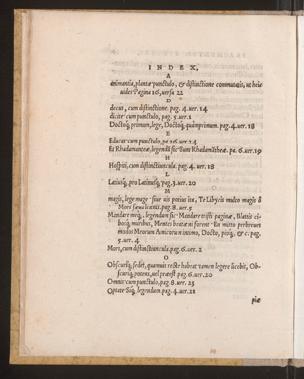 INDEX,
A
animantia, plantæ punctulo, & distinctione commutatis, ut hic
uides Pagina 16, uersu 22
D
decus, cum distinctione. pag. 4. uer. 14
dicite cum punctulo, pag. 5. uer. 1
Doctoq; primum, lege, Doctoq; quàm primum. pag. 4. uer. 18
E
Educat cum punctulo, pa 16. uer. 14
Et Rhadamanteæ, legendū sic Eum Rhadamātheæ. pa. 6. uer. 19
H
Hospiti, cum distinctiuncula. pag. 4. uer. 18
L
Latiusq; pro Latinusq; pag. 3. uer. 20
M
magis, lege mage siue uis potius ita, Te Libycis multo magis
pag. 8. uer. 5
Mendare meq;, legendum sic Mendare tristi paginæ,
modos Meorum Amicorum intimo, Docto, pióq; & c. pag.
5. uer. 4
Mori, cum distinctiuncula. pag. 6. uer. 2
O
Obscuriq; sedet, quamuis rectè habeat tamen legere licebit, Ob-
scuriq; potens, uel præest pag. 6. uer. 20
Omnis cum punctulo, pag. 8. uer. 25
Optate Siq; legendum pag. 4. uer. 21
piæ